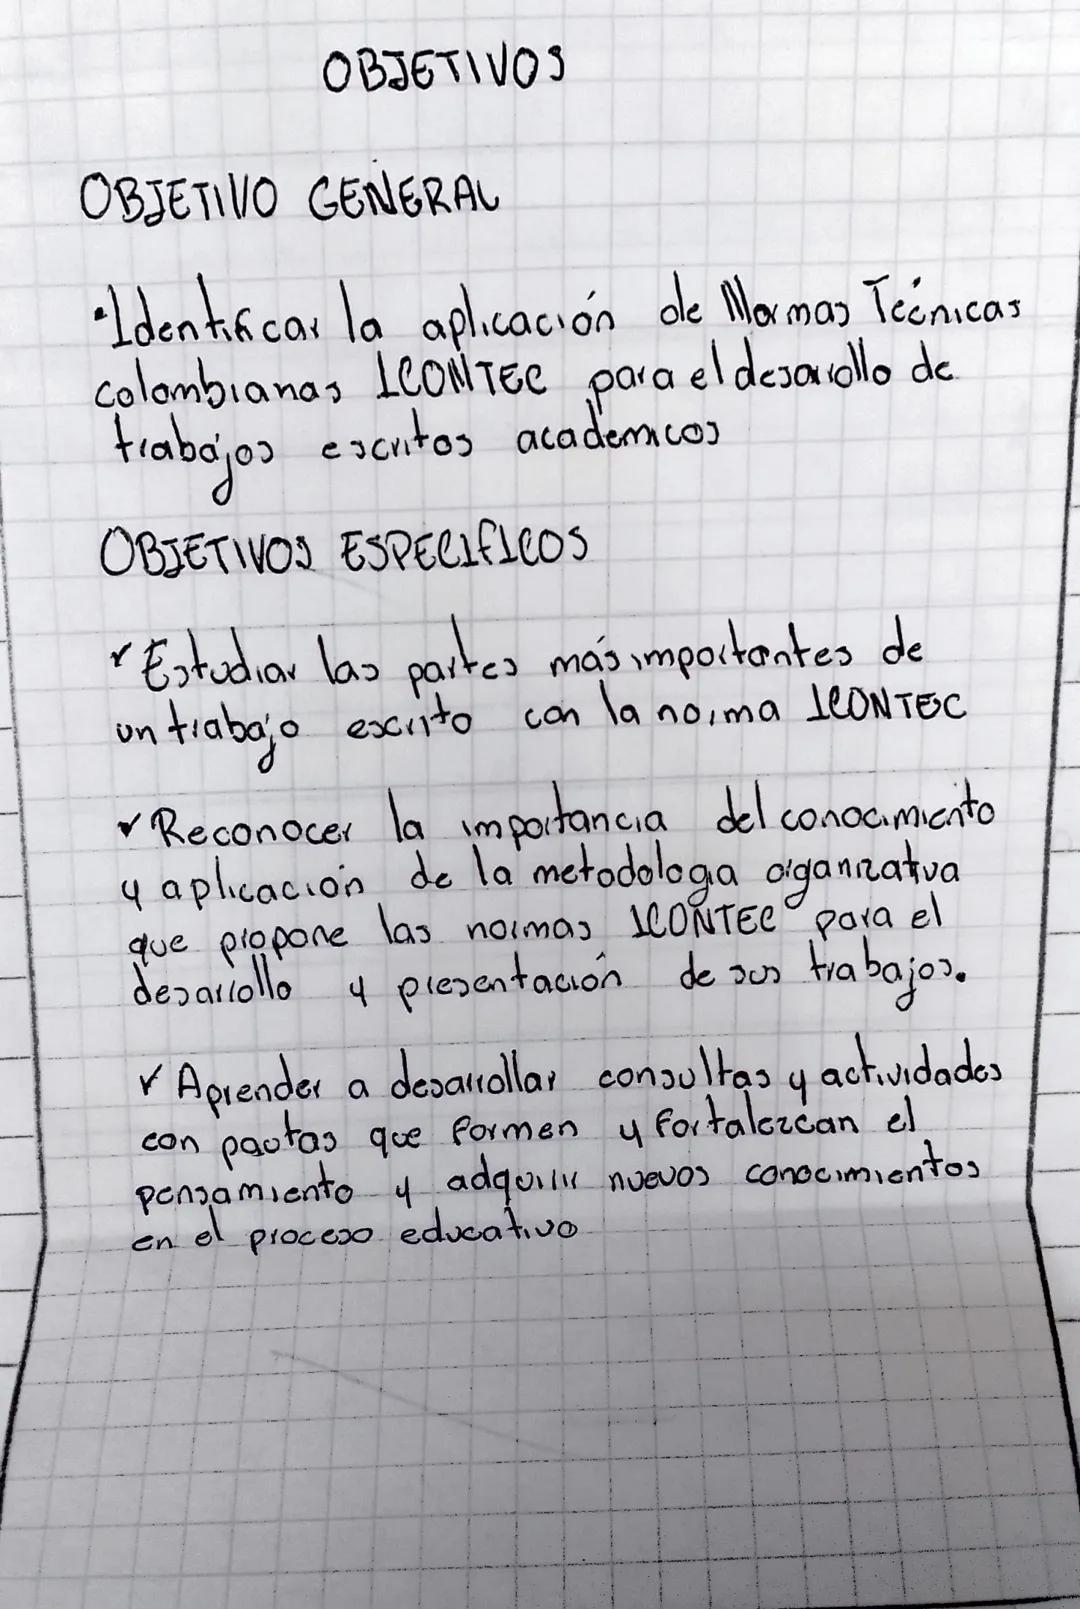 OBJETIVOS
OBJETIVO GENERAL
•Identificar la aplicación de Normas Técnicas
colombianas ICONTEC para el desarollo de
trabajos escritos academicos
OBJETIVOS ESPECIFICOS
✓ Estudiar las partes más importantes de
un trabajo escrito con la norma ICONTEC
✓ Reconocer la importancia del conocimiento
y aplicación de la metodologia organizativa
que propone las normas ICONTEC para el
desarrollo y presentación de sus trabajos.
✓ Aprender a desarrollar consultas y actividades
con pautas que formen y fortalezcan el
pensamiento y adquirir nuevos conocimientos
en el proceso educativo